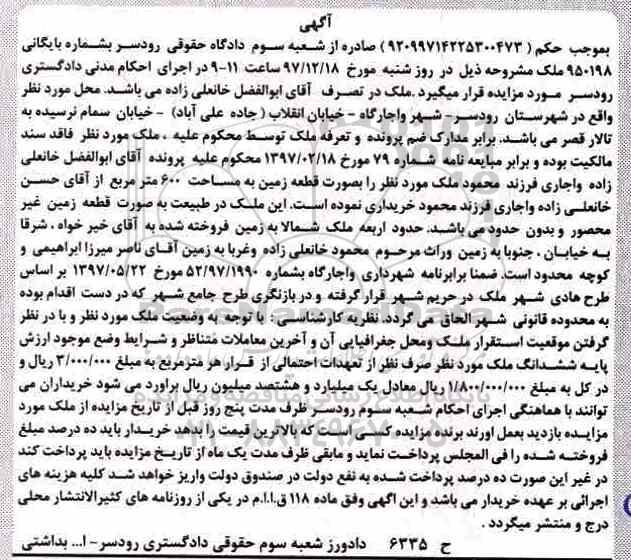 آگهی
بموجب حکم ( ۹۲۰۹۹۷۱۴۲۲۵۳۰۰۴۷۳ ) صادره از شعبه سوم دادگاه حقوقی رودسر بشماره بایگانی
۹۵۰۱۹۸ ملک مشروحه ذیل در روز شنبه مورخ ۹۷/۱۲/۱۸ ساعت ۱۱-۹ در اجرای احکام مدنی دادگستری
رودسر مورد مزایده قرار میگیرد .ملک در تصرف آقای ابوالفضل خانعلی زاده می باشد. محل مورد نظر
واقع در شهرستان رودسر- شهر واجارگاه - خیابان انقلاب ( جاده علی آباد) - خیابان سمام نرسیده به
تالار قصر می باشد. برابر مدارک ضم پرونده و تعرفه ملک توسط محکوم علیه ، ملک مورد نظر فاقد سند
مالکیت بوده و برابر مبایعه نامه شماره ۷۹ مورخ ۱۳۹۷/۰۲/۱۸ محکوم علیه پرونده آقای ابوالفضل خانعلی
زاده واجاری فرزند محمود ملک مورد نظر را بصورت قطعه زمین به مساحت ۶۰۰ متر مربع از آقای حسن
خانعلی زاده واجاری فرزند محمود خریداری نموده است. این ملک در طبیعت به صورت قطعه زمین غیر
محصور و بدون حدود می باشد. حدود اربعه ملک شمالا به زمین فروخته شده به آقای خیر خواه ، شرقا
به خیابان ، جنوبا به زمین وراث مرحوم محمود خانعلی زاده وغربا به زمین آقای ناصر میرزا ابراهیمی و
کوچه محدود است. ضمنا برابرنامه شهرداری واجارگاه بشماره ۵۲/۹۷/۱۹۹۰ مورخ ۱۳۹۷/۰۵/۲۲ بر اساس
طرح هادی شهر ملک در حریم شهر قرار گرفته و در بازنگری طرح جامع شهر که در دست اقدام بوده
به محدوده قانونی شهر الحاق می گردد. نظریه کارشناسی : با توجه به وضعیت ملک مورد نظر و با در نظر
گرفتن موقعیت استقرار ملک ومحل جغرافیایی آن و آخرین معاملات متناظر و شرایط وضع موجود ارزش
پایه ششدانگ ملک مورد نظر صرف نظر از تعهدات احتمالی از قرار هر مترمربع به مبلغ ۳/۰۰۰/۰۰۰ ریال و
در کل به مبلغ ۱/۸۰۰/۰۰۰/۰۰۰ ریال معادل یک میلیارد و هشتصد میلیون ریال براورد می شود خریداران می
توانند با هماهنگی اجرای احکام شعبه سوم رودسر ظرف مدت پنج روز قبل از تاریخ مزایده از ملک مورد
مزایده بازدید بعمل اورند برنده مزایده کسی است که بالاترین قیمت را بدهد خریدار باید ده درصد مبلغ
فروخته شده را فی المجلس پرداخت نماید و مابقی ظرف مدت یک ماه از تاریخ مزایده باید پرداخت کند
در غیر این صورت ده درصد پرداخت شده به نفع دولت در صندوق دولت واریز خواهد شد کلیه هزینه های
اجرائی بر عهده خریدار می باشد و این اگهی وفق ماده ۱۱۸ ق.ا.ا.م در یکی از روزنامه های کثیرالانتشار محلی
درج و منتشر میگردد .
ح ۶۳۳۵ دادورز شعبه سوم حقوقی دادگستری رودسر- ا... بداشتی